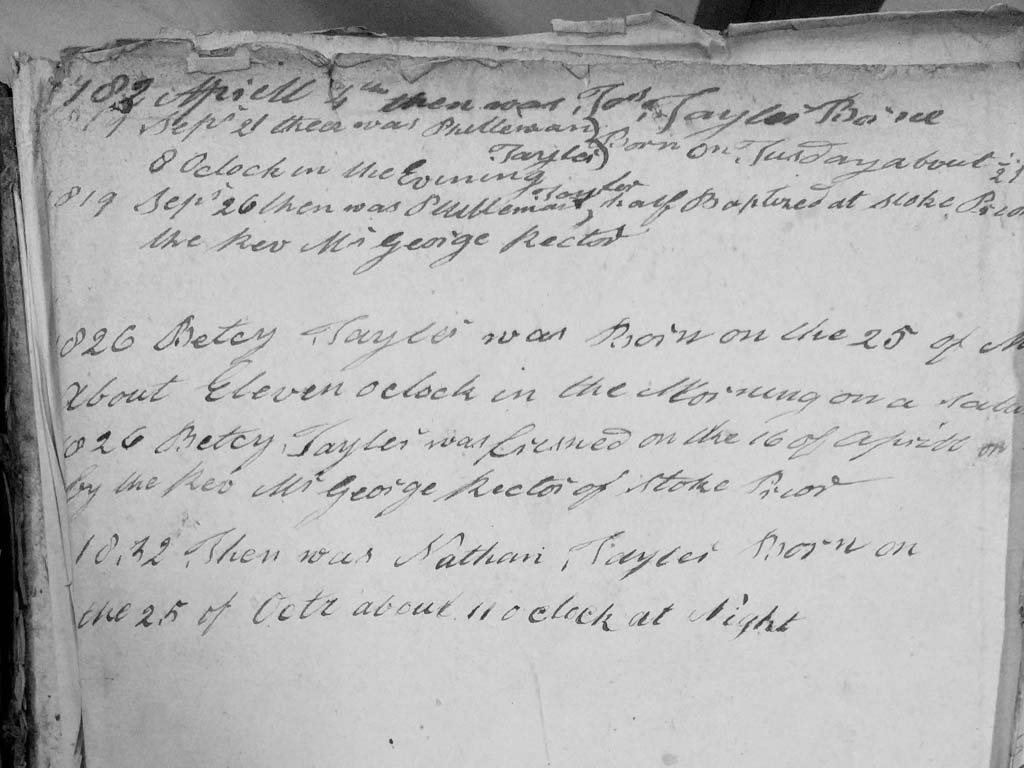 Aprill 4th then was Jos. Tayler Borne
819 Sepr 21 then was Philleman Tayler } Born on Tusday about 1/2
8 Oclock in the Evining
819 Sepr 26 then was Philleman Tayler half Baptized at Stoke Prior
the Rev Mr George Rector
826 Betcy Tayler was Born on the 25 of M
About Eleven oclock in the Morning on a Satu
826 Betcy Tayler was Cresned on the 16 of Aprill on
by the Rev Mr George Rector of Stoke Prior
1832 Then was Nathan Tayler Born on
the 25 of Octr about 11 oclock at Night